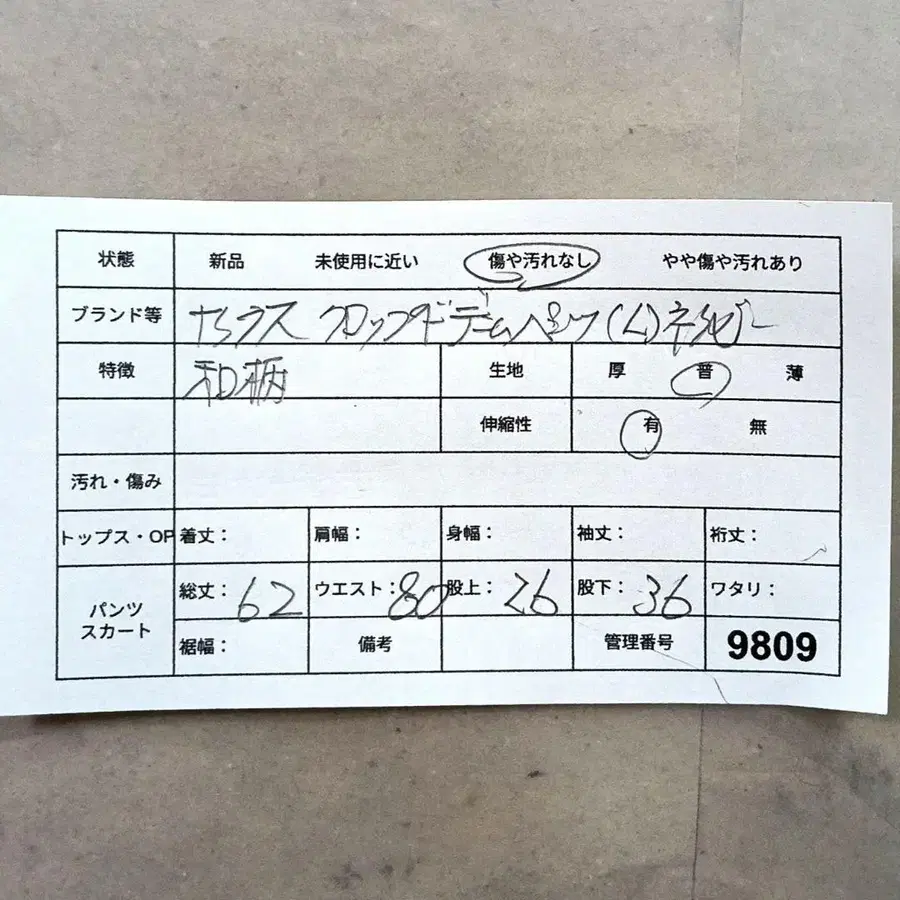 状態 新品 未使用に近い 傷や汚れなし やや傷や汚れあり
ブランド等 クロップドデニムパンツ(L)ネイビー
特徴 和柄 生地 厚 普 薄
伸縮性 有 無
汚れ・傷み
トップス・OP 着丈: 肩幅: 身幅: 袖丈: 裄丈:
パンツ スカート 総丈: 62 ウエスト: 80 股上: 26 股下: 36 ワタリ:
裾幅: 備考 管理番号 9809